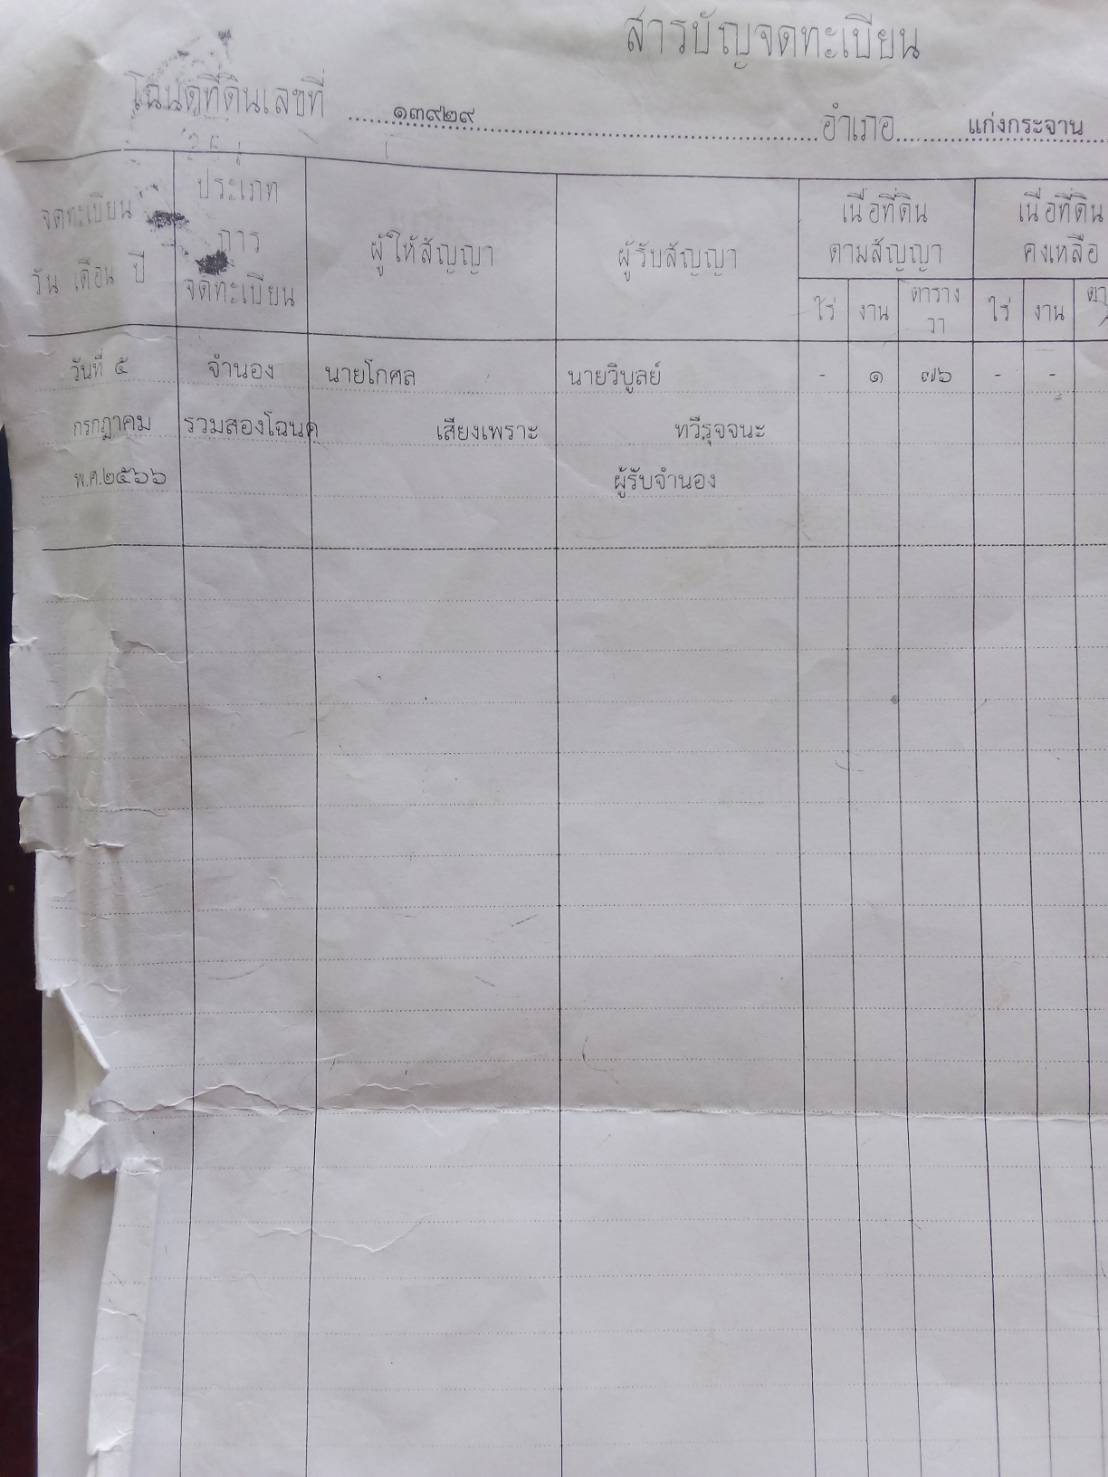 สารบัญจดทะเบียน
โฉนดที่ดินเลขที่ ๑๓๙๒๙ อำเภอ แก่งกระจาน
จดทะเบียน
วัน เดือน ปี
ประเภท
การ
จดทะเบียน
ผู้ให้สัญญา
ผู้รับสัญญา
เนื้อที่ดิน
ตามสัญญา
เนื้อที่ดิน
คงเหลือ
ไร่ งาน ตาราง
วา
ไร่ งาน
วันที่ ๕ จำนอง นายโกศล นายวิบูลย์ - ๑ ๗๖ - -
กรกฎาคม รวมสองโฉนด เสียงเพราะ ทวีรุจจนะ
พ.ศ.๒๕๖๖ ผู้รับจำนอง